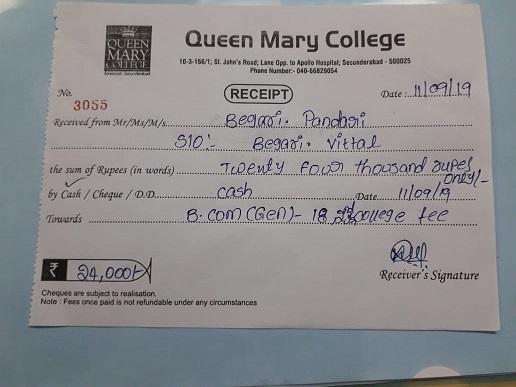 QUEEN
MARY
COLLEGE
Queen Mary College
10-3-166/1; St. John's Road; Lane Opp. to Apollo Hospital; Secunderabad - 500025
Phone Number:- 040-66829054
No. 3055
RECEIPT
Date : 11/09/19
Received from Mr/Ms/M/s. Begari. Pandari
S/O:- Begari. Vittal
the sum of Rupees (in words) Twenty four thousand rupes only/-
by Cash / Cheque / D.D. cash Date 11/09/19
Towards B.com (Gen) - college fee
₹ 24,000/-
Receiver's Signature
Cheques are subject to realisation.
Note : Fees once paid is not refundable under any circumstances